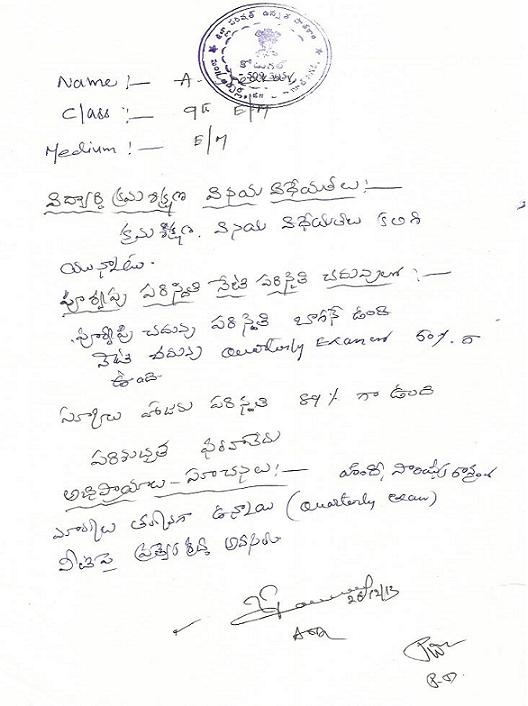 జిల్లా పరిషత్ ఉన్నత పాఠశాల
Name :— A.
Class :— 9th E/M
Medium :— E/M
విద్యార్థి క్రమశిక్షణ వినయ విధేయతలు :—
క్రమశిక్షణ. వినయ విధేయతలు కలిగి
యున్నాడు.
పూర్వపు పరిస్థితి నేటి పరిస్థితి చదువులో :—
పూర్వపు చదువు పరిస్థితి బాగానే ఉంది
నేటి చదువు Quarterly Exam 50%. గా
ఉంది.
స్కూలు హాజరు పరిస్థితి 89% గా ఉంది
పరిశుభ్రత ఫరవాలేదు
అభిప్రాయాలు - సూచనలు :— హిందీ, సాంఘిక
మార్కులు తక్కువగా ఉన్నాయి (Quarterly Exam)
వీటిపై ప్రత్యేక శ్రద్ధ అవసరం
26/12/13